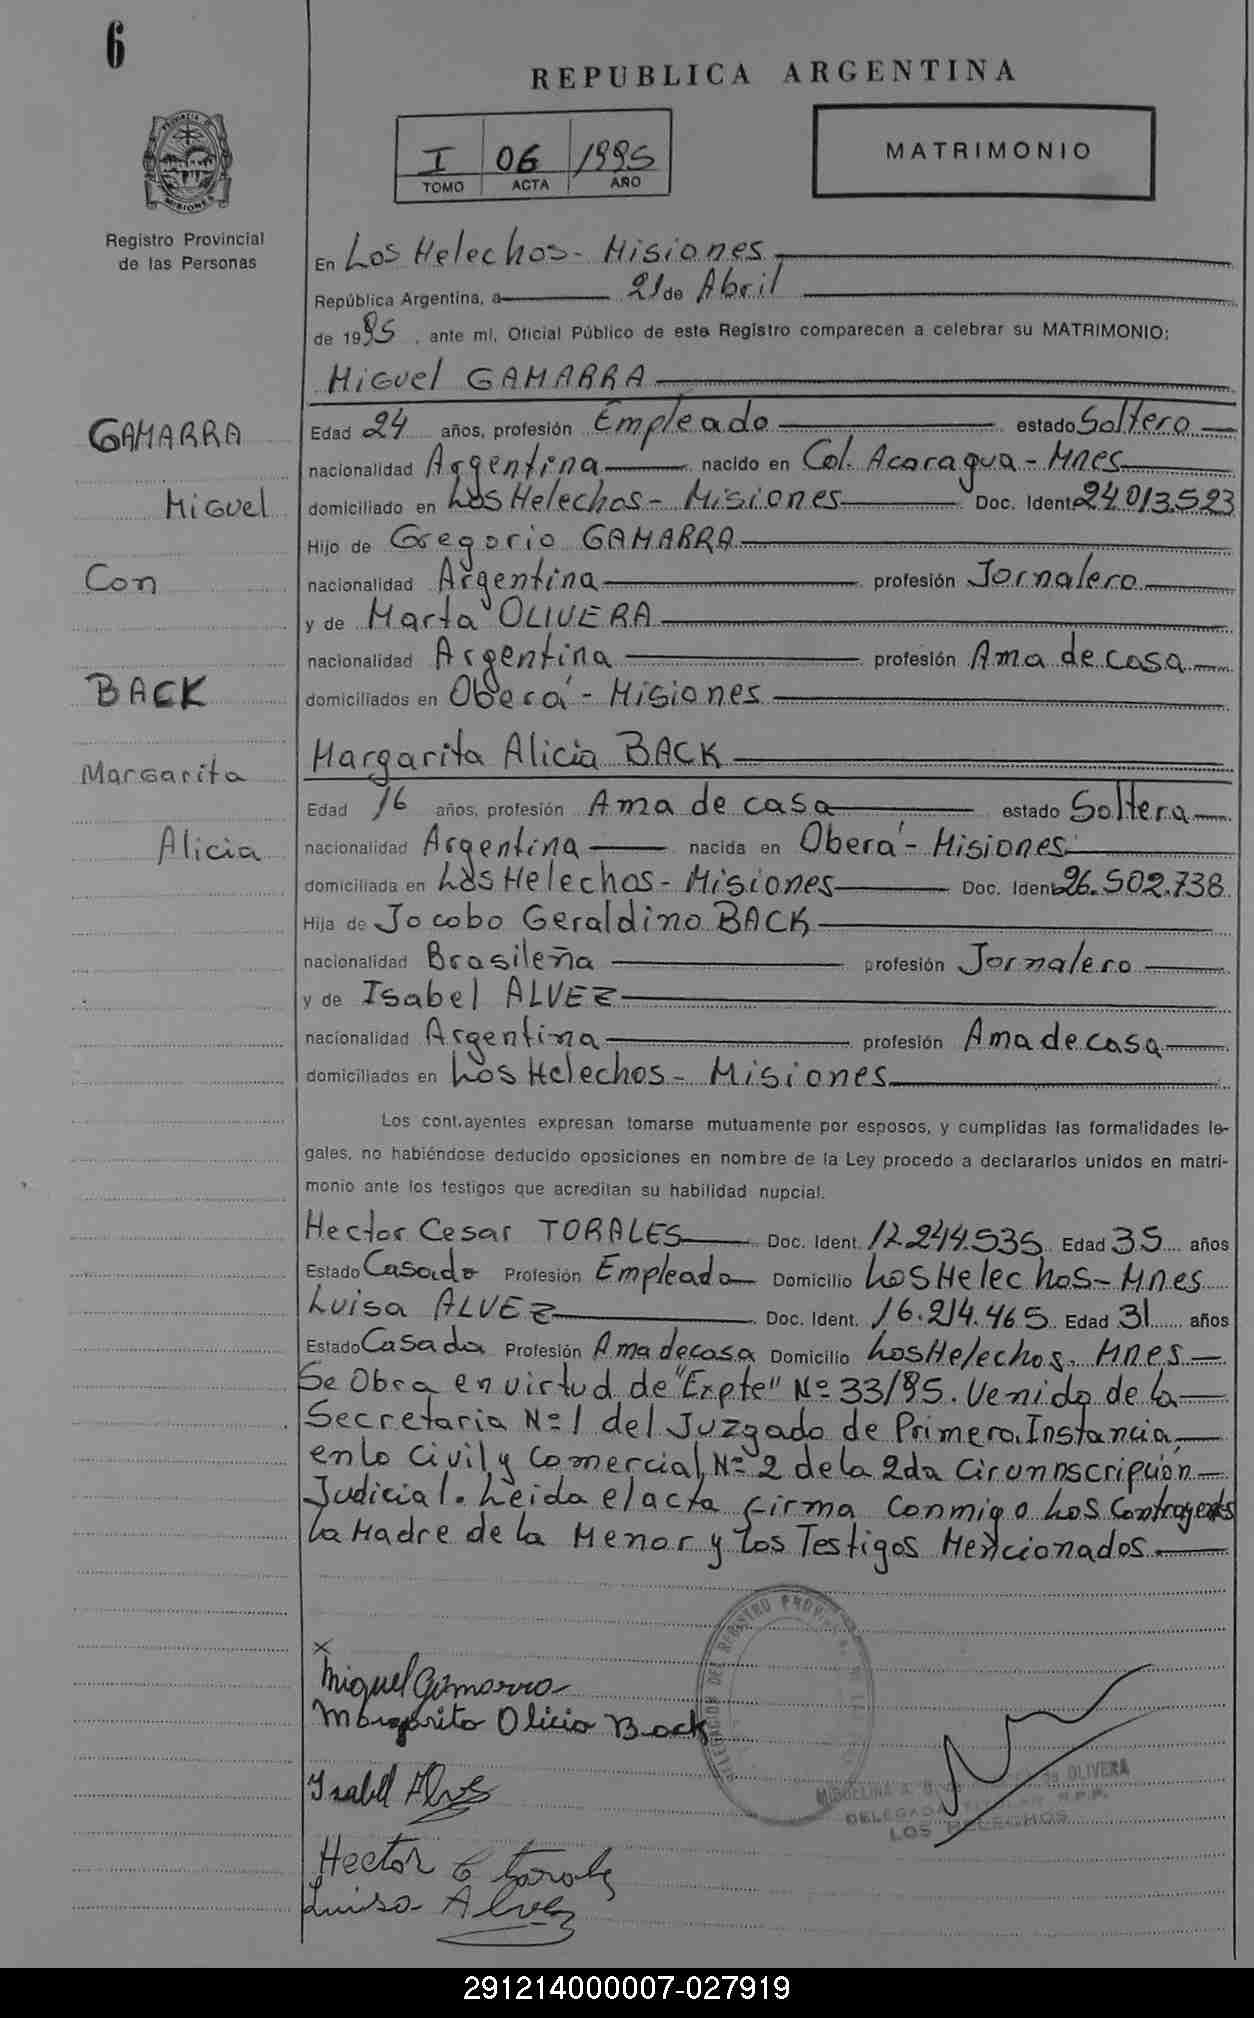 6
REPUBLICA ARGENTINA
MATRIMONIO
I 06 1995
TOMO ACTA AÑO
PROVINCIA DE MISIONES
Registro Provincial
de las Personas
En Los Helechos - Misiones
República Argentina, a 21 de Abril
de 1995, ante mí, Oficial Público de este Registro comparecen a celebrar su MATRIMONIO:
Miguel GAMARRA
GAMARRA
Miguel
Con
BACK
Margarita
Alicia
Edad 24 años, profesión Empleado estado Soltero
nacionalidad Argentina nacido en Col. Acaragua - Mnes
domiciliado en Los Helechos - Misiones Doc. Ident. 24.013.523
Hijo de Gregorio GAMARRA
nacionalidad Argentina profesión Jornalero
y de Marta OLIVERA
nacionalidad Argentina profesión Ama de casa
domiciliados en Oberá - Misiones
Margarita Alicia BACK
Edad 16 años, profesión Ama de casa estado Soltera
nacionalidad Argentina nacida en Oberá - Misiones
domiciliada en Los Helechos - Misiones Doc. Ident. 26.502.738
Hija de Jocobo Geraldino BACK
nacionalidad Brasileña profesión Jornalero
y de Isabel ALVEZ
nacionalidad Argentina profesión Ama de casa
domiciliados en Los Helechos - Misiones
Los contrayentes expresan tomarse mutuamente por esposos, y cumplidas las formalidades le-
gales, no habiéndose deducido oposiciones en nombre de la Ley procedo a declararlos unidos en matri-
monio ante los testigos que acreditan su habilidad nupcial.
Hector Cesar TORALES Doc. Ident. 12.244.535 Edad 35 años
Estado Casado Profesión Empleado Domicilio Los Helechos - Mnes
Luisa ALVEZ Doc. Ident. 16.214.465 Edad 31 años
Estado Casada Profesión Ama de casa Domicilio Los Helechos. Mnes
Se Obra en virtud de "Expte" Nº 33/95. Venido de la
Secretaria Nº 1 del Juzgado de Primera Instancia,
en lo Civil y Comercial Nº 2 de la 2da Cirunnscripción
Judicial. Leida el acta firma conmigo Los Contrayentes
La Madre de la Menor y Los Testigos Mencionados
x
Miguel Gamarra
Margarita Alicia Back
Isabel Alves
Hector C Torales
Luisa Alvez
DELEGACION DEL REGISTRO PROVINCIAL DE LAS
OLIVERA
DELEGADA TITULAR R.P.P.
LOS HELECHOS
291214000007-027919